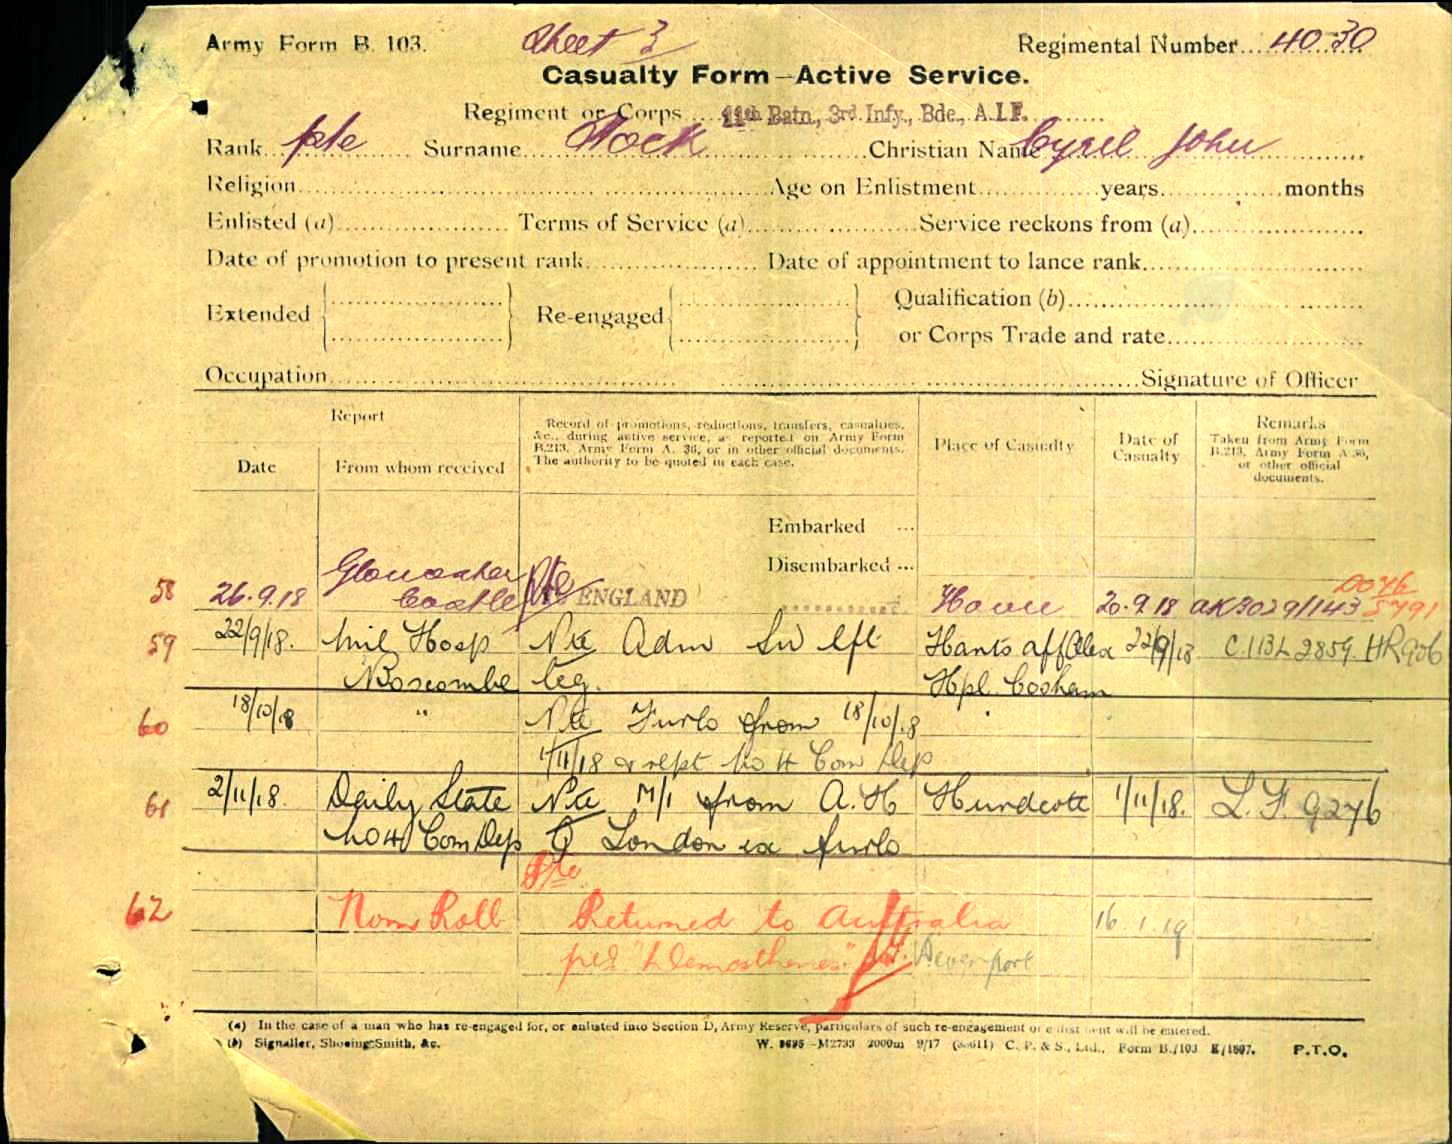 Army Form B. 103. Sheet 3 Regimental Number 4030
Casualty Form—Active Service.
Regiment or Corps 11th Batn., 3rd Infy., Bde., A.I.F.
Rank Pte Surname Christian Name Cyril John
Religion Age on Enlistment years months
Enlisted (a) Terms of Service (a) Service reckons from (a)
Date of promotion to present rank Date of appointment to lance rank
Extended Re-engaged Qualification (b)
or Corps Trade and rate
Occupation Signature of Officer
Report
Date From whom received
Record of promotions, reductions, transfers, casualties,
&c., during active service, as reported on Army Form
B.213, Army Form A. 36, or in other official documents.
The authority to be quoted in each case.
Place of Casualty
Date of
Casualty
Remarks
Taken from Army Form
B.213, Army Form A 36,
or other official
documents.
Embarked ...
Disembarked ...
58 26.9.18 Gloucester Castle Pte ENGLAND Havre 20.9.18 AK3029/143
59 22/9/18. Mil Hosp Pte Adm Lft Hants Alex 22/9/18 HR906
Boscombe Leg. Hpl. Cosham
60 18/10/18 " Pte Furlo from 18/10/18
1/11/18 & rept No 4 Com Dep
61 2/11/18. Daily State Pte M/I from A.H Hurdcott 1/11/18. L.F. 9276
No 4 Com Dep Q London ex furlo
Pte
62 Nom Roll Returned to Australia 16.1.19
per "Demosthenes" Devonport
(a) In the case of a man who has re-engaged for, or enlisted into Section D, Army Reserve, particulars of such re-engagement or enlistment will be entered.
(b) Signaller, Shoeing-Smith, &c. M2733 2000m 9/17 C. P. & S., Ltd., Form B./103 E/1807. P.T.O.